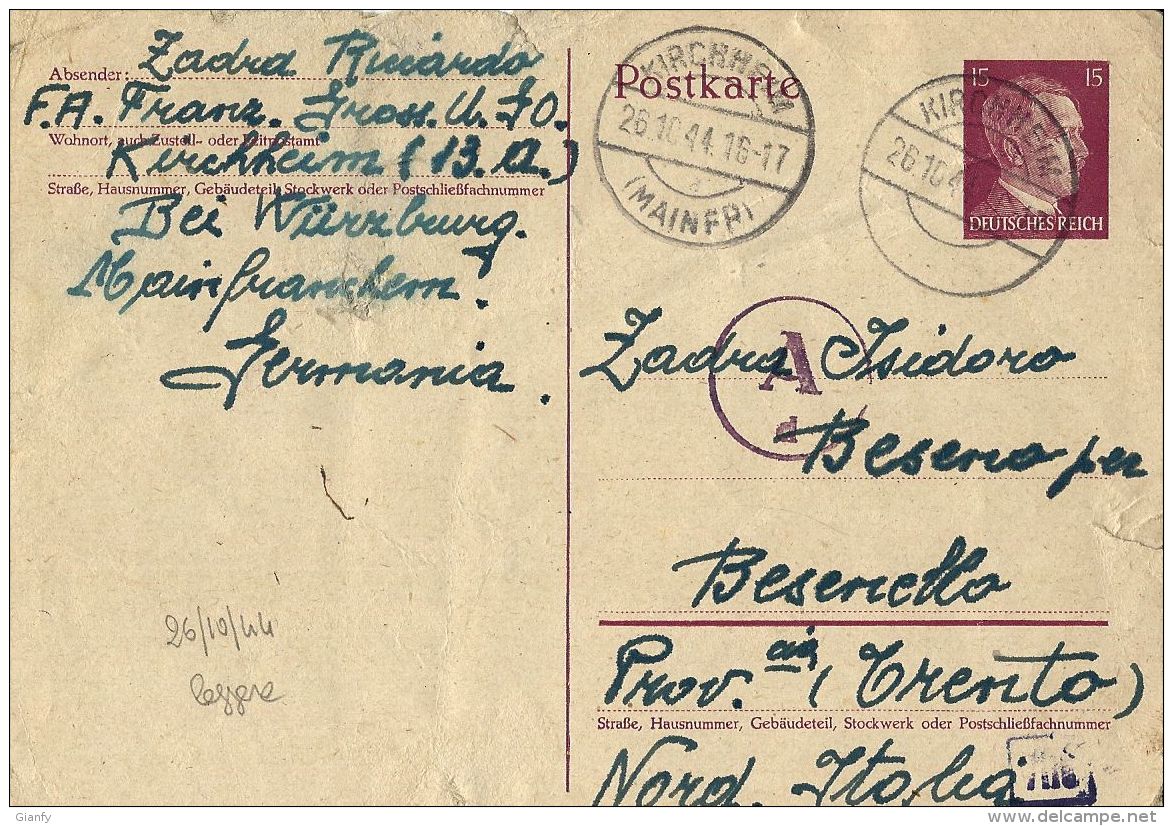 Absender: Zadra Riccardo
F.A. Franz. Gross. U. 70.
Wohnort, auch Zustell- oder Leitpostamt
Kirchheim (13.a.)
Straße, Hausnummer, Gebäudeteil, Stockwerk oder Postschließfachnummer
Bei Würzburg.
Mainfranchem.
Germania.
26/10/44
leggere
Postkarte
KIRCHHEIM
26.10.44.16-17
(MAINFR)
KIRCHHEIM
26.10.44
15 15
DEUTSCHES REICH
A
d
Zadra Isidoro
Beseno per
Besenello
Prov.cia (Trento)
Straße, Hausnummer, Gebäudeteil, Stockwerk oder Postschließfachnummer
Nord. Italia
Gianfy
www.delcampe.net